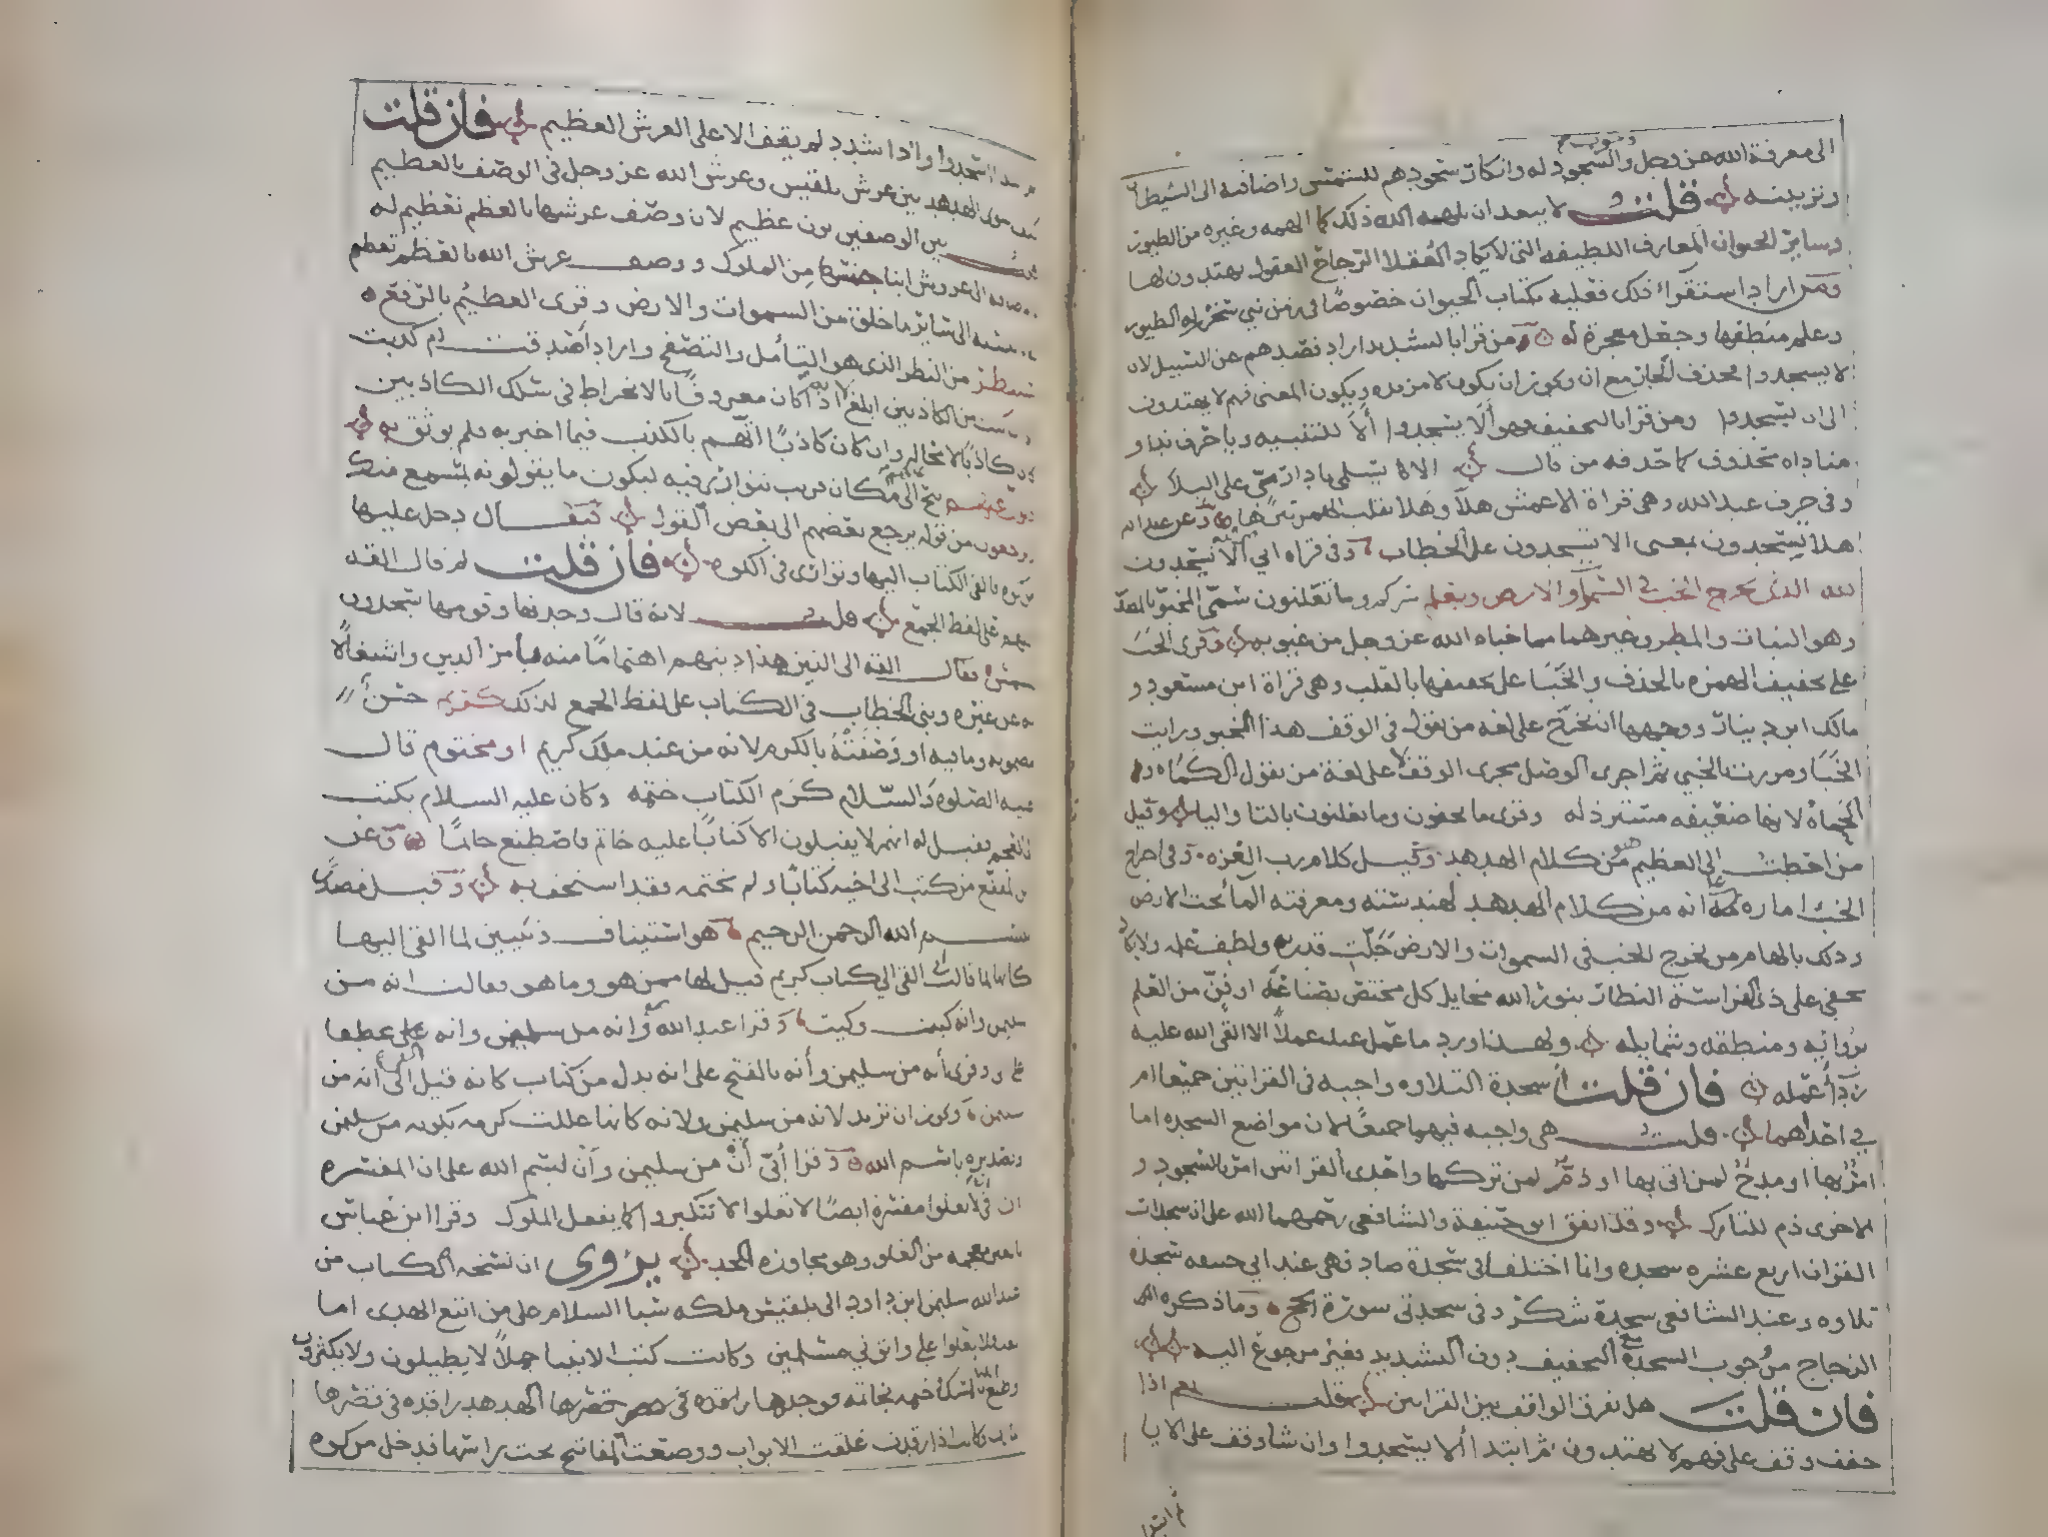 الى معرفة الله عز وجل ووجوب السجود له وانكار سجودهم للشمس واضافته الى الشيطان
وتزيينه قلت لا يبعد ان يلهمه الله ذلك كما الهمه وغيره من الطيور
وسائر الحيوان المعارف اللطيفه التى لا يكاد العقلا الرجاح العقول يهتدون لها
ومن اراد استقراء ذلك فعليه بكتاب الحيوان خصوصًا فى زمن نبي سخرت له الطيور
وعلم منطقها وجعل معجزة له ومن قرا بالتشديد اراد فصدهم عن السبيل لان
لا يسجدوا فحذف الجار مع ان ويجوز ان يكون لا مزيده ويكون المعنى فهم لا يهتدون
الى ان يسجدوا ومن قرا بالتخفيف فهو أَلَا يسجدوا ألا للتنبيه ويا حرف نداو
مناداه محذوف كما حذفه من قال الا يا اسلمى يا دار مىّ على البلا
وفى حرف عبدالله وهى قراة الاعمش هلّا وهَلا بقلب الهمزتين ها وعن عبدالله
هلا تسجدون بمعنى الا تسجدون على الخطاب وفى قراه ابي ألا تسجدون
لله الذى يخرج الخب فى السما والارض ويعلم سركم وما تعلنون سمّى المخبو بالمصدر
وهو النبات والمطر وغيرهما مما خباه الله عز وجل من غيوبه وقرى الخبَ
على تخفيف الهمزه بالحذف والخَبَا على تخفيفها بالقلب وهى قراة ابن مسعود و
مالك ابن دينار ووجهها ان تخرّج على لغه من يقول فى الوقف هذا الخبو ورايت
الخبَا ومررت بالخبي ثم اجرى الوصل مجرى الوقف لا على لغة من يقول الكماه و
الحماة لانها ضعيفه مسترذله وقرى ما يخفون وما يعلنون باليا والتا وقيل
من احطت الى العظيم هو من كلام الهدهد وقيل كلام رب العزه وفى اخراج
الخب اماره على انه من كلام الهدهد لهندسته ومعرفته الما تحت الارض
وذلك بالهام من يخرج الخب فى السموات والارض جلّت قدرته ولطف علمه ولا يكاد
يخفى على ذى الفراسة النظار بنور الله مخايل كل مختص بصناعة او فنّ من العلم
فى رُوائه ومنطقه وشمايله ولهذا ورد ما عمل عبد عملًا الا القى الله عليه
ردا عمله فان قلت أسجدة التلاوه واجبه فى القرائتين جميعا ام
في احداهما قلت هى واجبه فيهما جميعًا لان مواضع السجده اما
امرٌ بها او مدحٌ لمن اتى بها او ذمٌّ لمن تركها واحدى القراتين امر بالسجود و
الاخرى ذم للتارك وقد اتفق ابو حنيفة والشافعى رحمهما الله على ان سجدات
القران اربع عشره سجده وانما اختلفا فى سجدة صاد فهى عند ابي حنيفه سجدة
تلاوه وعند الشافعى سجدة شكر وفى سجدتى سورة الحج وما ذكره
الزجاج من وجوب السجدة مع التخفيف دون التشديد فغير مرجوع اليه
فان قلت هل يفرق الواقف بين القراتين قلت نعم اذا
خفف وقف على فهم لا يهتدون ثم ابتدا ألا يسجدوا وان شا وقف على الا يا
ثم ابتدا
اسجدوا واذا شدد لم يقف الا على العرش العظيم فان قلت
الهدهد بين عرش بلقيس وعرش الله عز وجل فى الوصف بالعظيم
بين الوصفين بون عظيم لان وصف عرشها بالعظم تعظيم له
الى عروش ابنا جنسها من الملوك ووصف عرش الله بالعظم تعظيم
الى سائر ما خلق من السموات والارض وقرى العظيمُ بالرفع
سننظر من النظر الذى هو التأمل والتصفح واراد أصدقت ام كذبت
من الكاذبين ابلغ لانه اذا كان معروفًا بالانخراط فى سلك الكاذبين
كان كاذبًا لا محاله وان كان كاذبًا اتّهم بالكذب فيما اخبر به فلم يوثق به
تول عنهم تنحّ الى مكان قريب تتوارى فيه ليكون ما يقولونه بمسمع منك
يرجعون من قوله يرجع بعضهم الى بعض القول فيقال دخل عليها
من كوه فالقى الكتاب اليها وتوارى فى الكوه فان قلت لم قال القه
اليهم على لفظ الجمع قلت لانه قال وجدتها وقومها يسجدون
للشمس فقال القه الى الذين هذا دينهم اهتمامًا منه بأمر الدين واشتغالًا
به عن غيره وبنى الخطاب فى الكتاب على لفظ الجمع لذلك كريم حسن
مضمونه وما فيه او وَصَفَتْهُ بالكرم لانه من عند ملِك كريم او مختوم قال
عليه الصلوه والسّلام كرَم الكتاب ختمه وكان عليه السلام يكتب
الى العجم فقيل له انهم لا يقبلون الا كتابًا عليه خاتم فاصطنع خاتمًا وعن
ابن المقفع من كتب الى اخيه كتابًا ولم يختمه فقد استخف به وقيل مصدّر
بسم الله الرحمن الرحيم هو استيناف وتبيين لما القى اليها
كانها لما قالت انى القى الي كتاب كريم قيل لها ممن هو وما هو فقالت انه من
سليمن وانه كيت وكيت وقرا عبدالله وانه من سليمن وانه على عطفا
على وقرى أنه من سليمن وأنه بالفتح على انه بدل من كتاب كانه قيل القى الى انه من
سليمن ويجوز ان تريد لانه من سليمن ولانه كانها عللت كرمه بكونه من سليمن
وتصديره باسم الله وقرا أبىّ أنْ من سليمن وأن بسم الله على ان المفسره
ان فى ألا تعلوا مفسرة ايضًا لا تعلوا لا تتكبروا كما يفعل الملوك وقرا ابن عباس
بالغين معجمه من الغلو وهو مجاوزه الحد يروى ان نسخه الكتاب من
عبدالله سليمن ابن داود الى بلقيس ملكه سبا السلام على من اتبع الهدى اما
بعد فلا تعلوا على واتونى مسلمين وكانت كتب الانبيا جملًا لا يطيلون ولا يكثرون
وطبع الكتاب بالمسك وختمه بخاتمه فوجدها راقده فى قصرها الهدهد راقده فى قصرها
وكانت اذا رقدت غلقت الابواب ووضعت المفاتيح تحت راسها فدخل من كوه